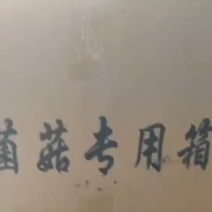 菌菇专用箱